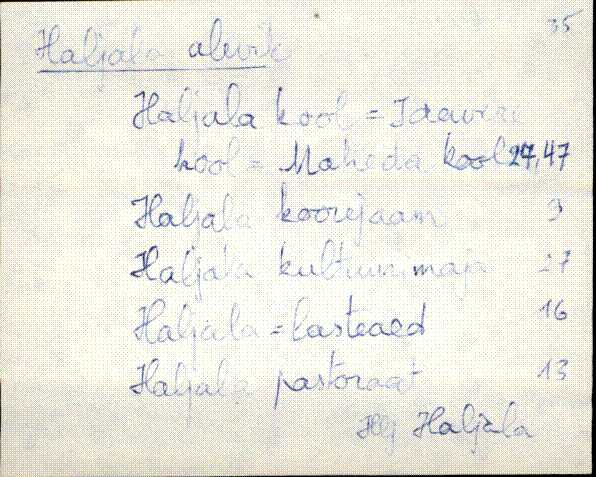 35
Haljala alevik
Haljala kool = Idavere
kool = Maheda kool 27, 47
Haljala koorejaam 9
Haljala kultuurimaja 27
Haljala = lasteaed 16
Haljala pastoraat 13
Hlj Haljala